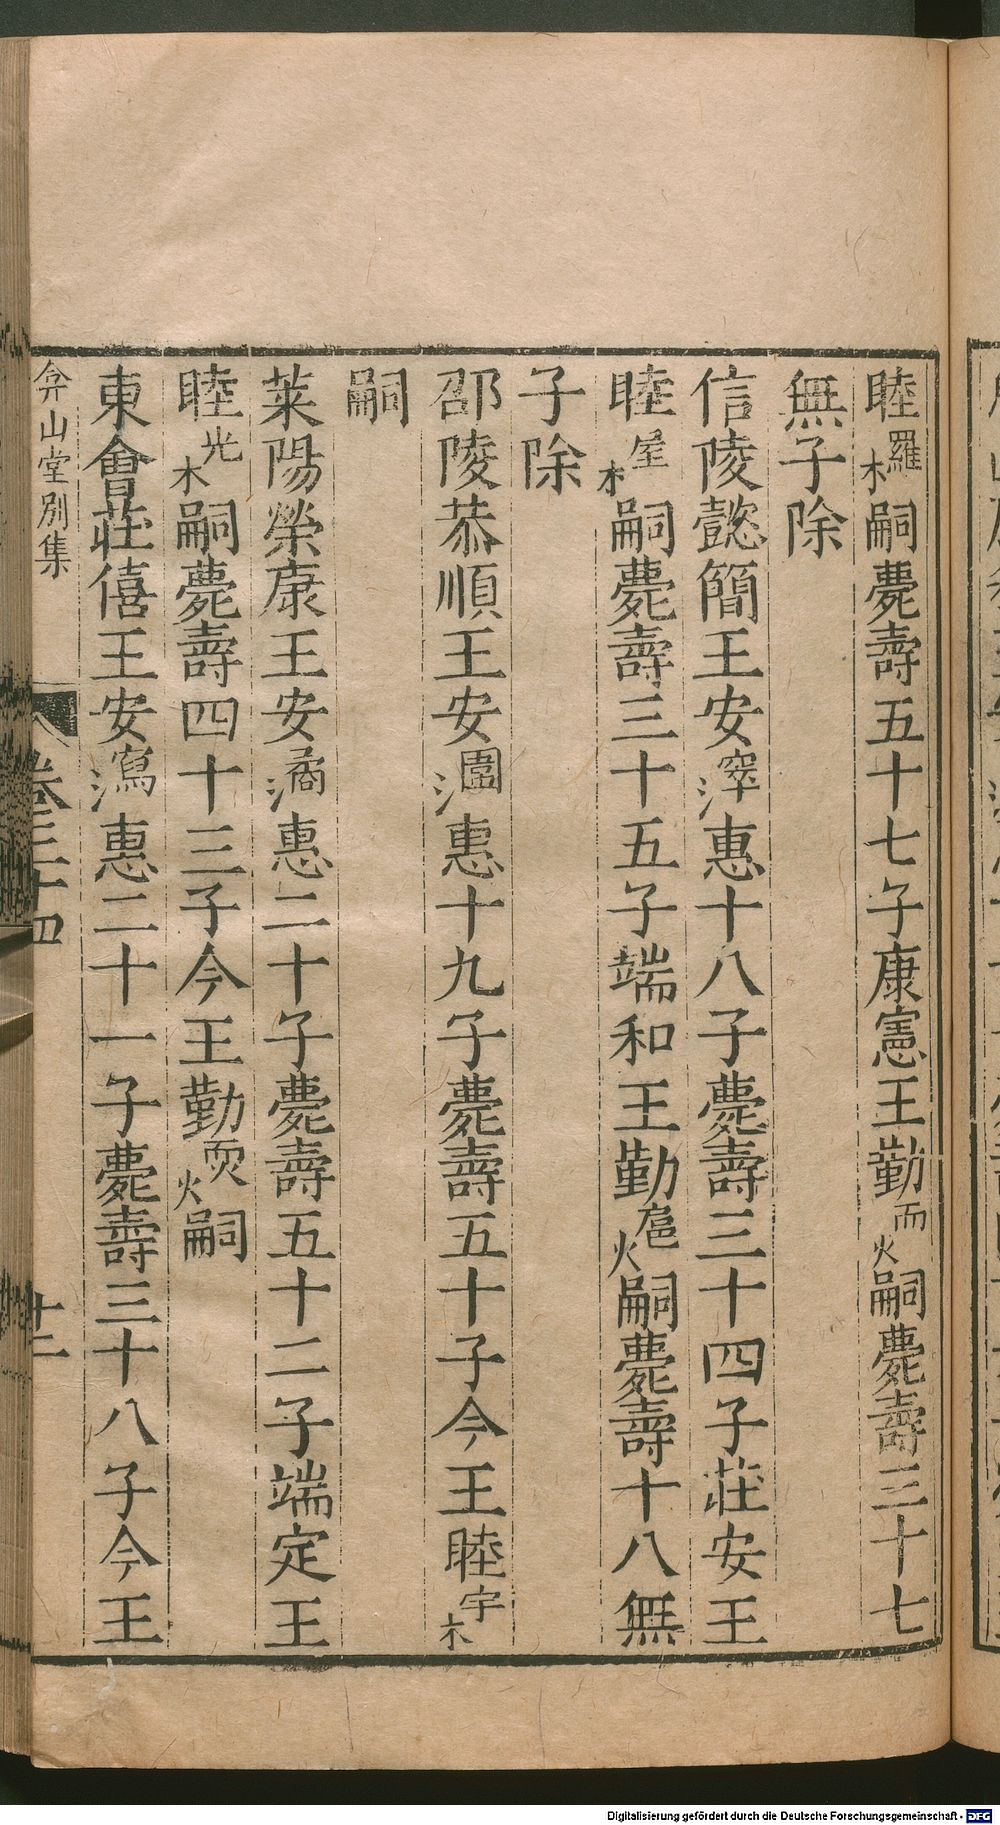 睦木羅嗣薨壽五十七子康憲王勤火而嗣薨壽三十七
無子除
信陵懿簡王安氵窣惠十八子薨壽三十四子莊安王
睦木屋嗣薨壽三十五子端和王勤火扈嗣薨壽十八無
子除
邵陵恭順王安氵圍惠十九子薨壽五十子今王睦木宇
嗣
萊陽榮康王安氵矞惠二十子薨壽五十二子端定王
睦木光嗣薨壽四十三子今王勤火耎嗣
東會莊僖王安氵寫惠二十一子薨壽三十八子今王
弇山堂別集
卷三十四
十二
Digitalisierung gefördert durch die Deutsche Forschungsgemeinschaft - DFG